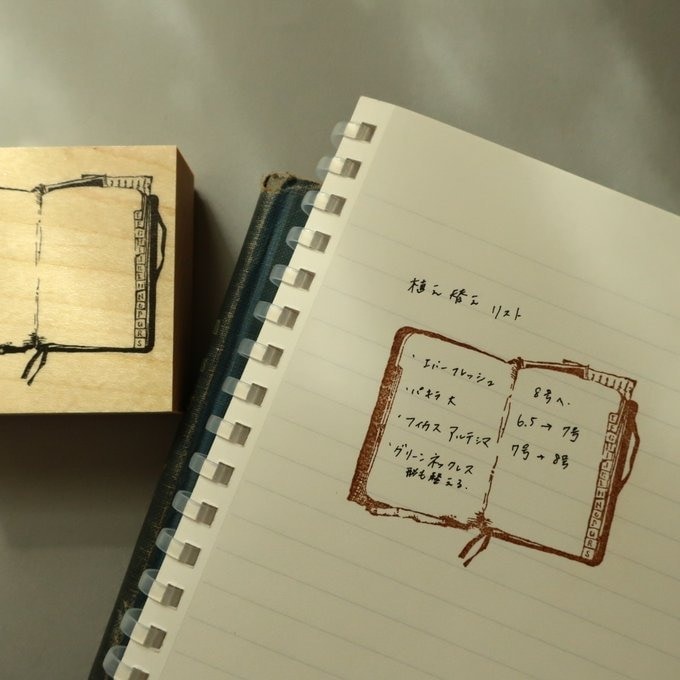 植え替え リスト
・エバーフレッシュ
・パキラ 大
・フィカス アルテシマ
・グリーンネックレス
鉢も替える.
8号へ.
6.5→7号
7号→8号